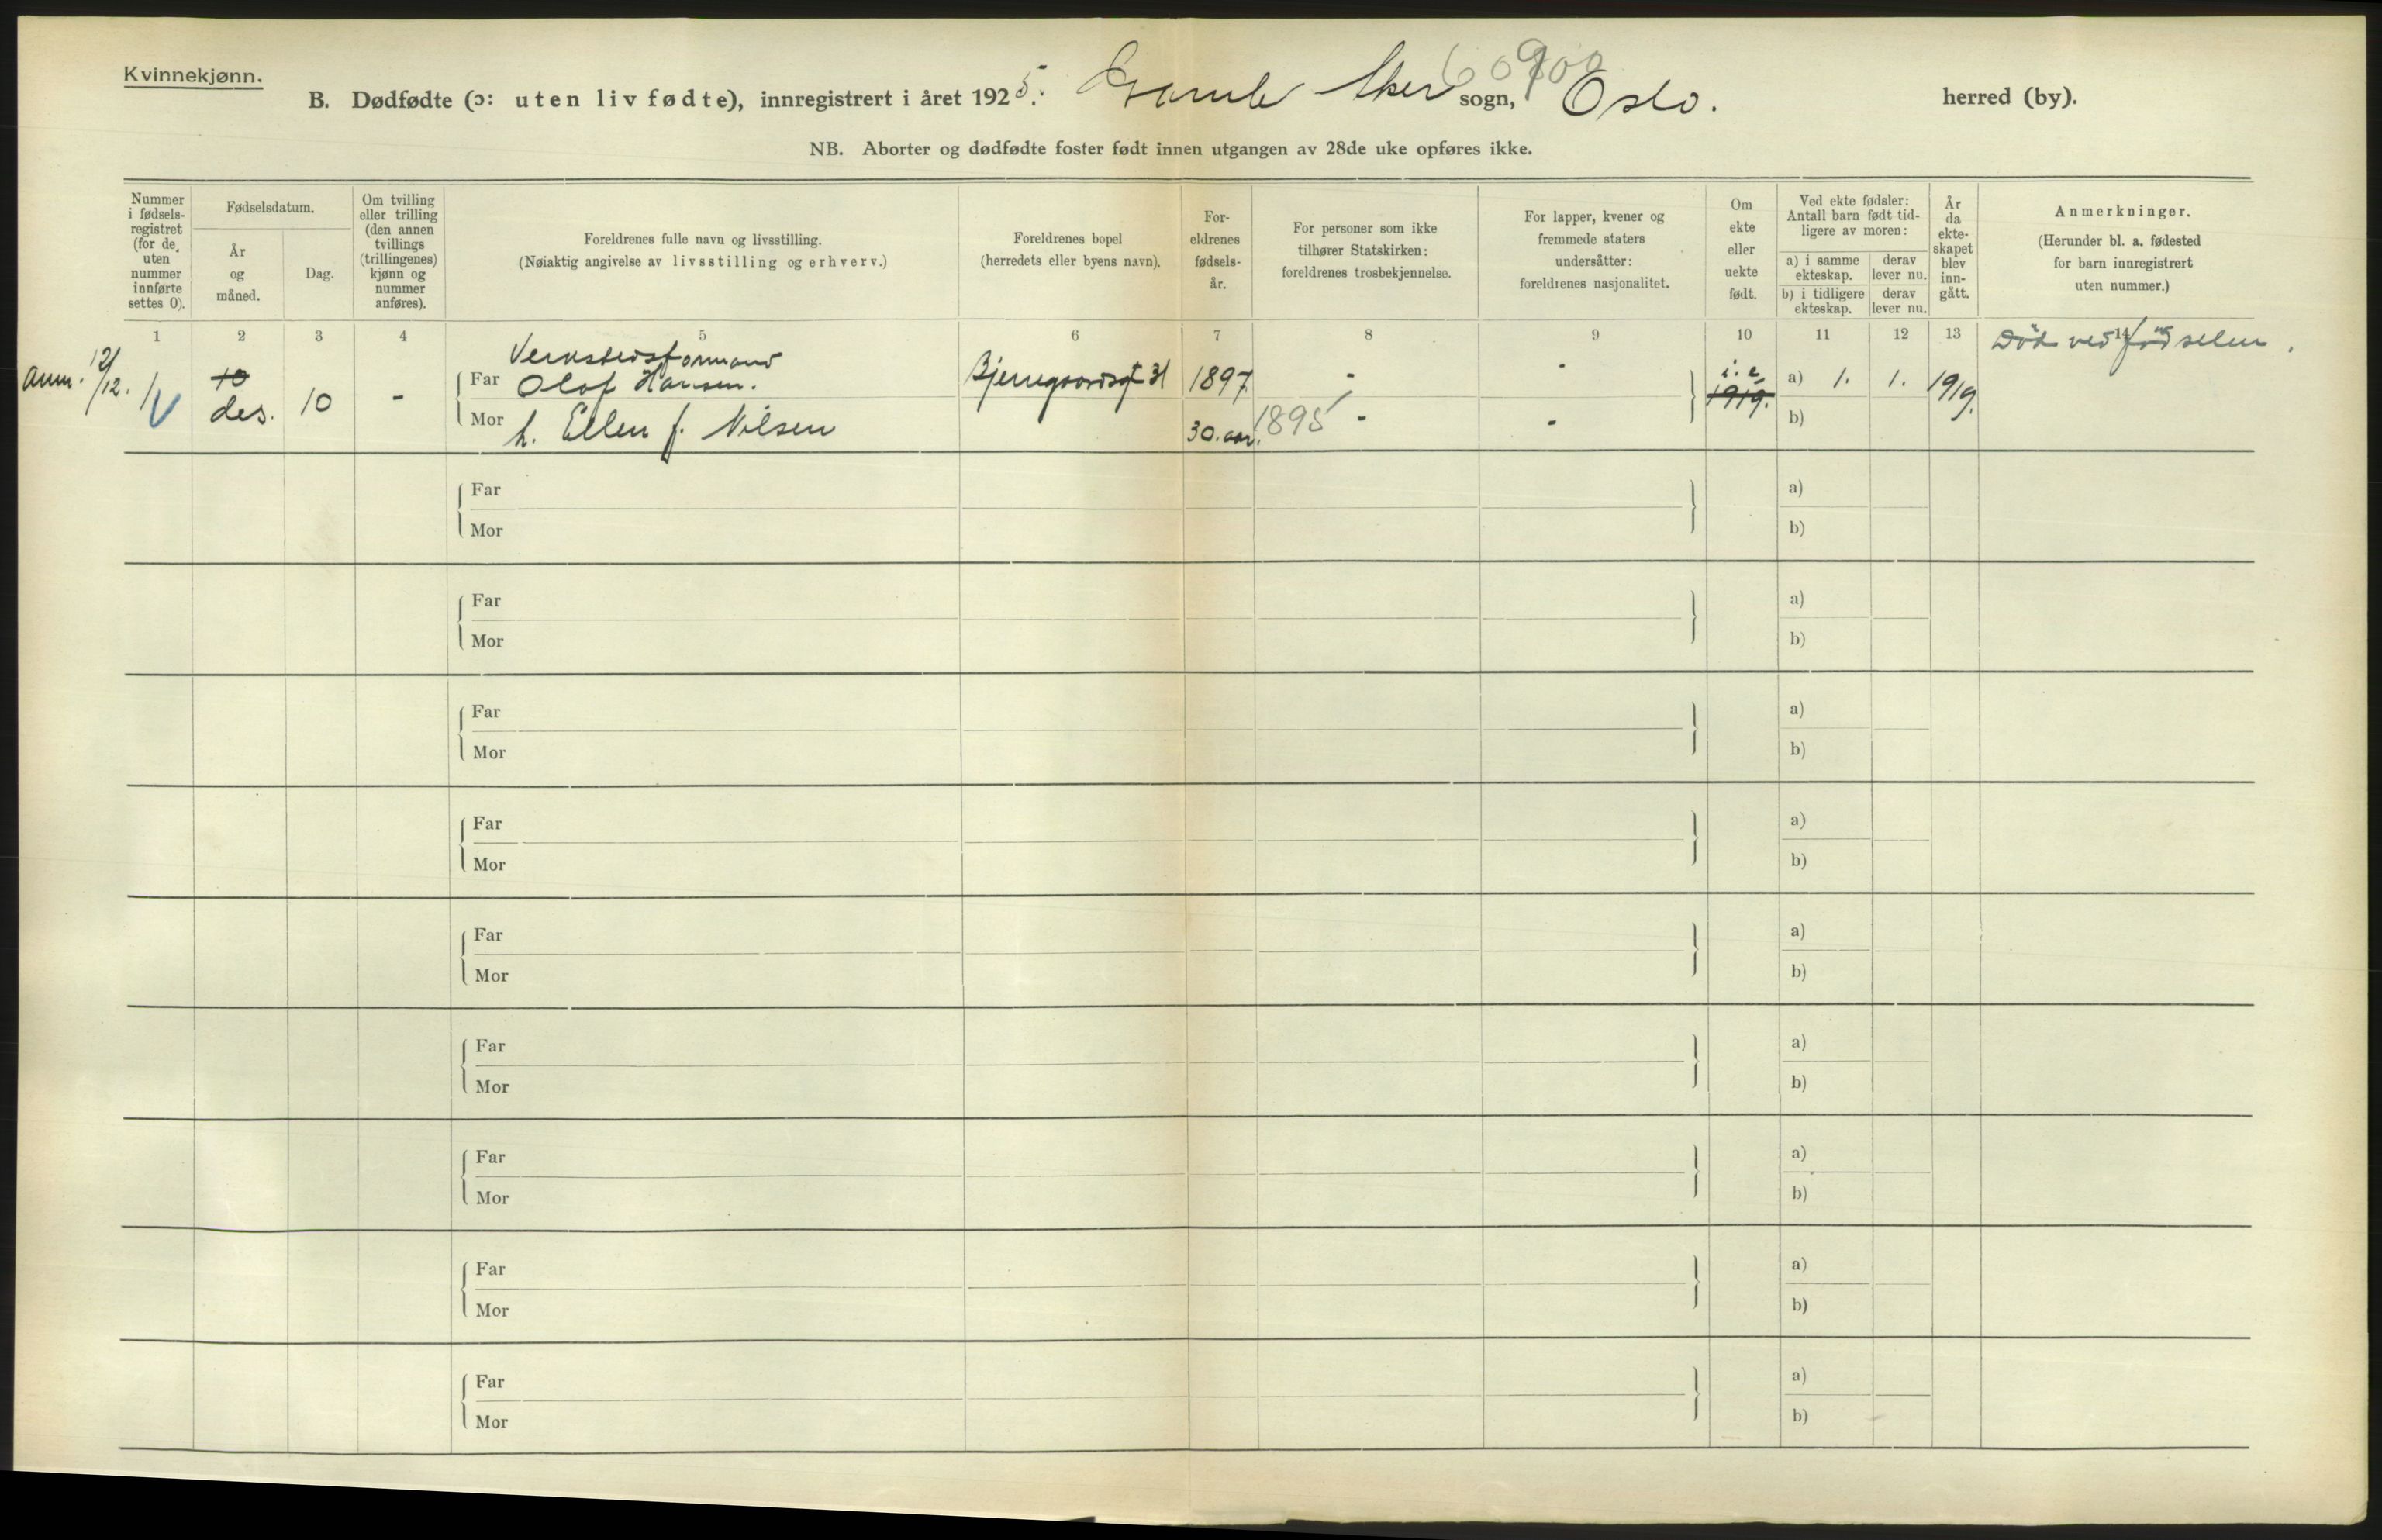 Kvinnekjønn.
B. Dødfødte (ɔ: uten liv fødte), innregistrert i året 1925. Gamle Aker sogn, Oslo. herred (by).
NB. Aborter og dødfødte foster født innen utgangen av 28de uke opføres ikke.
Nummer i fødsels- registret (for de uten nummer innførte settes 0).
Fødselsdatum.
År og måned.
Dag.
Om tvilling eller trilling (den annen tvillings (trillingenes) kjønn og nummer anføres).
Foreldrenes fulle navn og livsstilling.
(Nøiaktig angivelse av livsstilling og erhverv.)
Foreldrenes bopel
(herredets eller byens navn).
For- eldrenes fødsels- år.
For personer som ikke tilhører Statskirken: foreldrenes trosbekjennelse.
For lapper, kvener og fremmede staters undersåtter: foreldrenes nasjonalitet.
Om ekte eller uekte født.
Ved ekte fødsler: Antall barn født tid- ligere av moren:
a) i samme ekteskap.
derav lever nu.
b) i tidligere ekteskap.
derav lever nu.
År da ekte- skapet blev inn- gått.
Anmerkninger.
(Herunder bl. a. fødested for barn innregistrert uten nummer.)
1 2 3 4 5 6 7 8 9 10 11 12 13 14
Anm. 12/12. 1 10 des. 10 -
Verkstedsformand
Far Olaf Hansen. Bjerregaardsgt 31 1897 - - i. e. 1919. a) 1. 1. 1919. Död ved födselen.
Mor h. Ellen f. Nilsen 30. aar. 1895 - - b)
Far a)
Mor b)
Far a)
Mor b)
Far a)
Mor b)
Far a)
Mor b)
Far a)
Mor b)
Far a)
Mor b)
Far a)
Mor b)
Far a)
Mor b)
Far a)
Mor b)